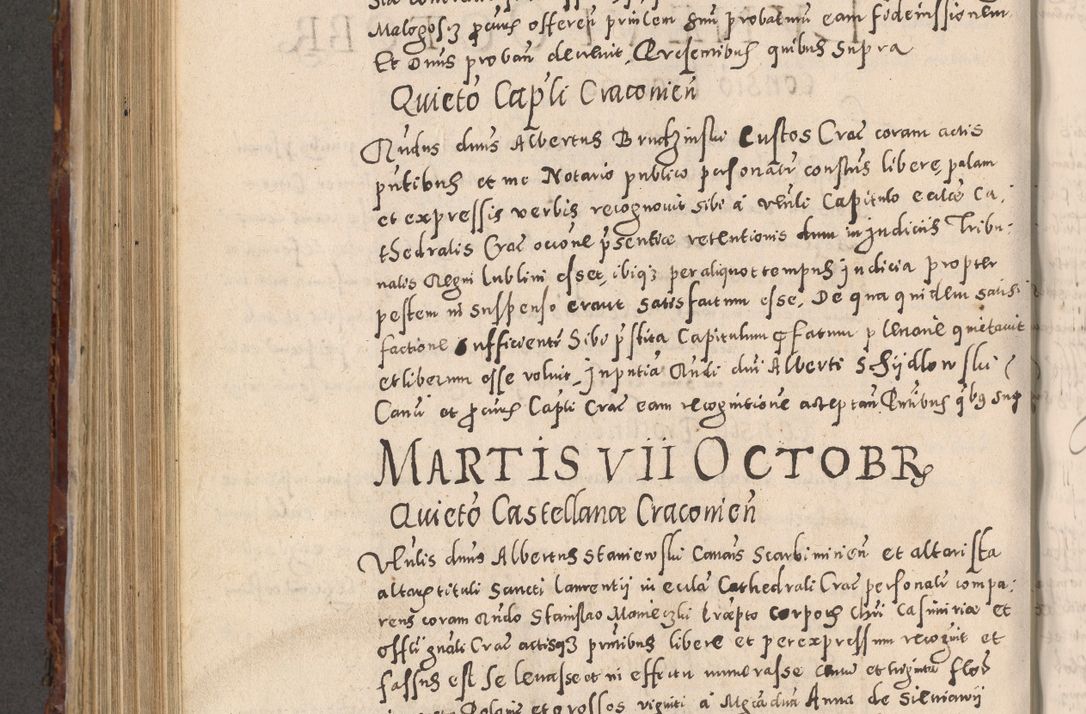 Malogosz procur offeren prinlem suu probatum eam fideiussionem
Et Dnus proban decreuit, Presentibus quibus supra
Quieto Capli Craconien
Rndus dnus Albertus Bruchzinski Custos Crac coram actis
pntibus et me Notario publico personatr constus libere, palam
et expressis verbis recognouit sibi a Vnli Capitulo ecclae Ca,
thedralis Crac ocione psentiae retentionis dum in Judiciis Tribu,
nalis Regni Lublini esset, ibiq3 per aliquot tempus judicia propter
pestem in suspenso erant satisfactum esse. De qua quidem satis
factione sufficientr sibi pstita Capitulum pfatum plenarie quietauit
et liberum esse voluit, In pntia Rndi dni Alberti Schydlowski
Canci et procuris Capli Crac eam recognitione acceptan. Pntibus qbq sup
MARTIS VII OCTOBR
Quieto Castellanae Craconien
Vnlis dnus Albertus Staniewski Canons Scarbimirien et altarista
altaris tituli Sancti Laurentij in eccla Cathedrali Crac personalr compa,
rens coram Rndo Stanislao Manieczki praepto Corporis Chri Casimiriae et
offli gnali Crac actisq3 pntibus libere et per expressum recogūit et
fassus est se leuasse et in effectu numerasse et viginta flor
Polonic et grossos viginti a Mgca dna Anna de Sieniawy